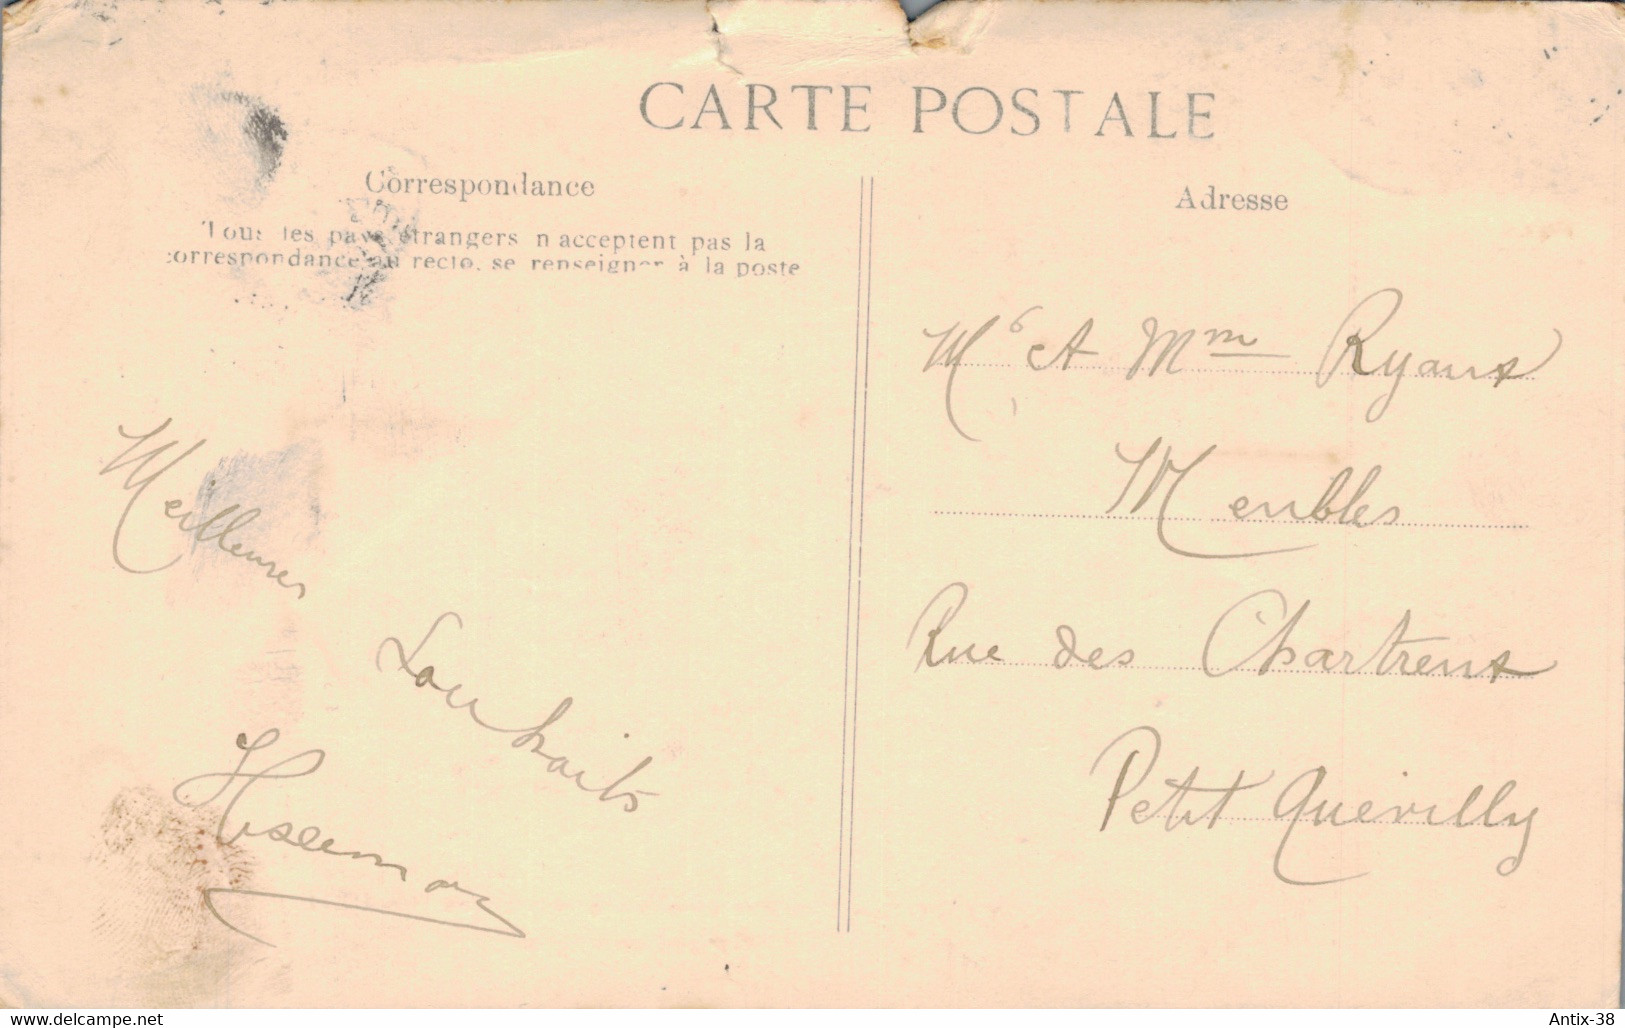 CARTE POSTALE
Correspondance
Tous les pays étrangers n'acceptent pas la
correspondance au recto, se renseigner à la poste
Meilleures
Souhaits
Adresse
Mr et Mme
Meubles
Rue des Chartreux
Petit Quevilly
www.delcampe.net
Antix-38